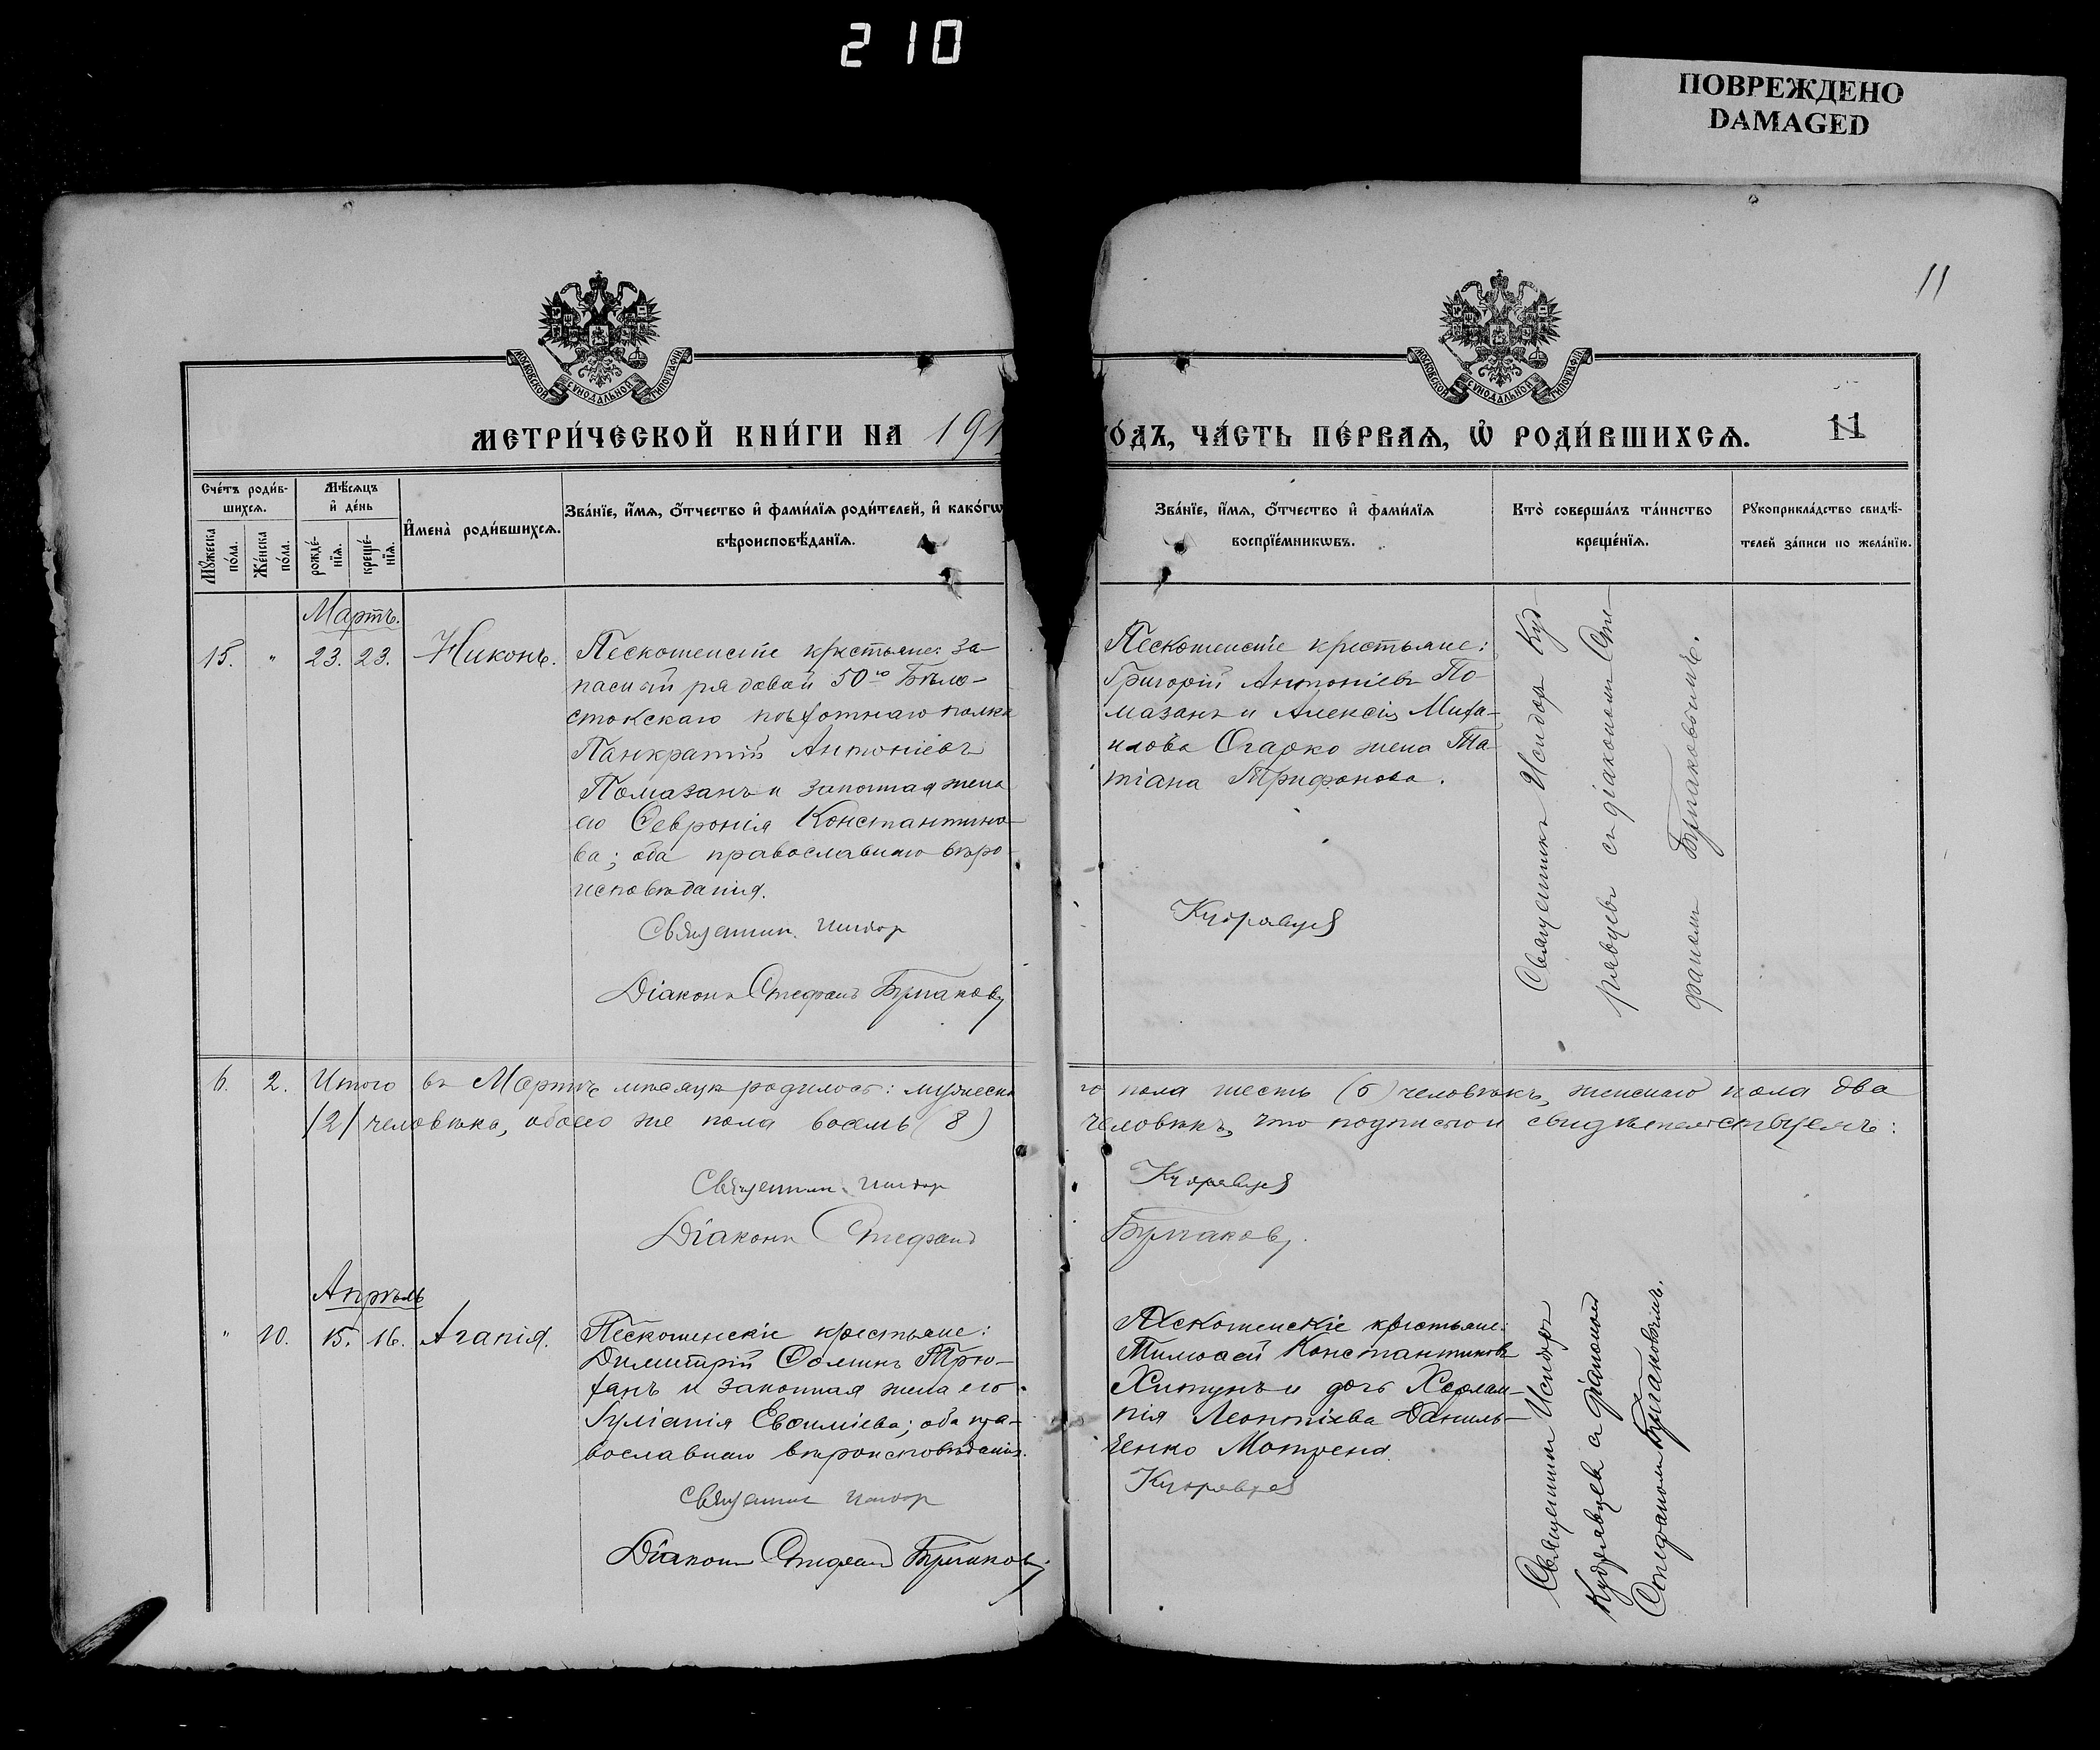 210
ПОВРЕЖДЕНО
DAMAGED
11
МОСКОВСКОЙ СѴНОДАЛЬНОЙ ТИПОГРАФІИ
МОСКОВСКОЙ СѴНОДАЛЬНОЙ ТИПОГРАФІИ
МЕТРИ́ЧЕСКОЙ КНИ́ГИ НА 191
ОДЪ, ЧА́СТЬ ПЕ́РВАѦ, Ѡ РОДИ́ВШИХСѦ.
11
Сче́тъ роди́в-
шихсѧ.
Мꙋжеска по́ла.
Же́нска по́ла.
Мѣ́сѧцъ
и҆ де́нь
рожде́-нїѧ.
креще́-нїѧ.
И҆мена̀ роди́вшихсѧ.
Зва́нїе, и҆́мѧ, ѻ҆́тчество и҆ фами́лїѧ роди́телей, и҆ како́гѡ
вѣроисповѣ́данїѧ.
Зва́нїе, и҆́мѧ, ѻ҆́тчество и҆ фами́лїѧ
воспрїе́мникѡвъ.
Кто̀ соверша́лъ та́инство
креще́нїѧ.
Рꙋкоприкла́дство свидѣ́-
телей за́писи по жела́нїю.
Мартъ.
15. " 23. 23. Никонъ.
Пескошенскіе крестьяне: за-
пасный рядовой 50го Бѣло-
стокскаго пѣхотнаго полка
Панкратій Антоніевъ
Помазанъ и законная жена
его Ѳевронія Константино-
ва; оба православнаго вѣро-
исповѣданія.
Священник Исидор
Діаконъ Стефанъ Булгаковъ
Пескошенскіе крестьяне:
Григорій Антоніевъ По-
мазанъ и Алексія Миха-
илова Огарко жена Та-
тіана Трифонова.
Кудрявцев
Священникъ Исидоръ Куд-
рявцевъ съ діакономъ Сте-
фаномъ Булгаковымъ.
6. 2. Итого въ Мартѣ мѣсяцѣ родилось: мужеска
го пола шесть (6) человѣкъ, женскаго пола два
/2/ человѣка, обоего же пола восемь (8)
человѣкъ, что подписью и свидѣтельствуемъ:
Священник Исидор
Кудрявцев
Діаконъ Стефанъ
Булгаковъ.
Апрѣль
" 10. 15. 16. Агапія.
Пескошенскіе крестьяне:
Димитрій Ѳоминъ Трю-
ханъ и законная жена его
Іуліанія Евѳиміева; оба пра-
вославнаго вѣроисповѣданія.
Священник Исидор
Діаконъ Стефанъ Булгаковъ.
Пескошенскіе крестьяне:
Тимоѳей Константиновъ
Хитунъ и дочь Харлам-
пія Леонтіева Даниль-
ченко Матрена.
Кудрявцев
Священникъ Исидоръ
Кудрявцевъ съ діакономъ
Стефаномъ Булгаковымъ.